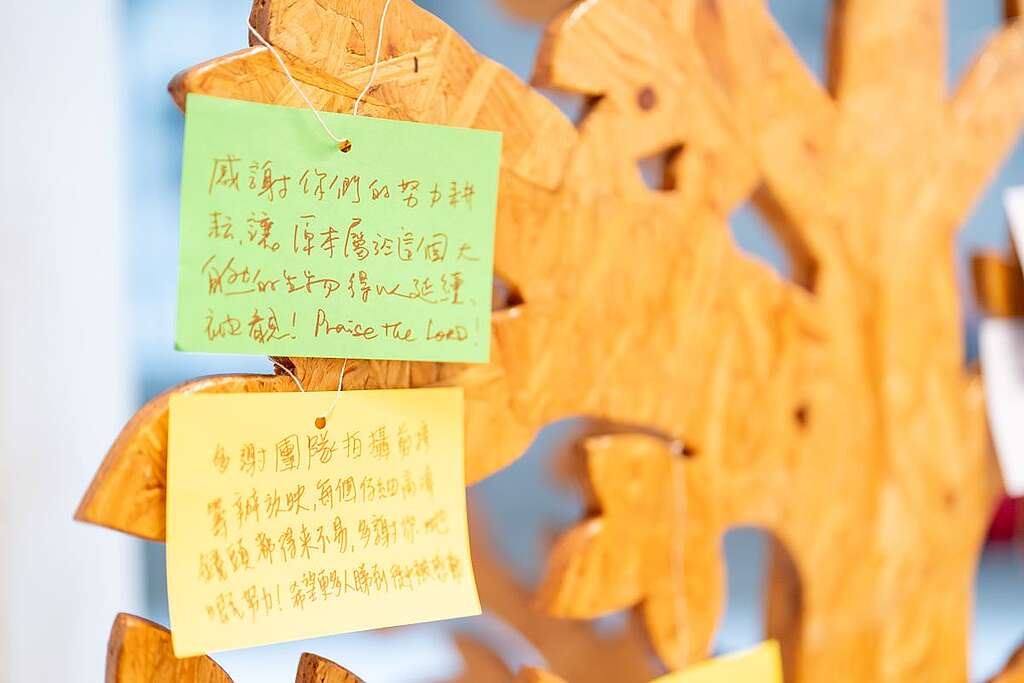 感謝你們的努力耕
耘，讓原本屬於這個大
自然的生物得以延續、
被看見！Praise the LORD!
多謝團隊拍攝
籌辦放映，每個仔細高清
鏡頭都得來不易，多謝你哋
嘅努力！希望更多人睇到後被感動